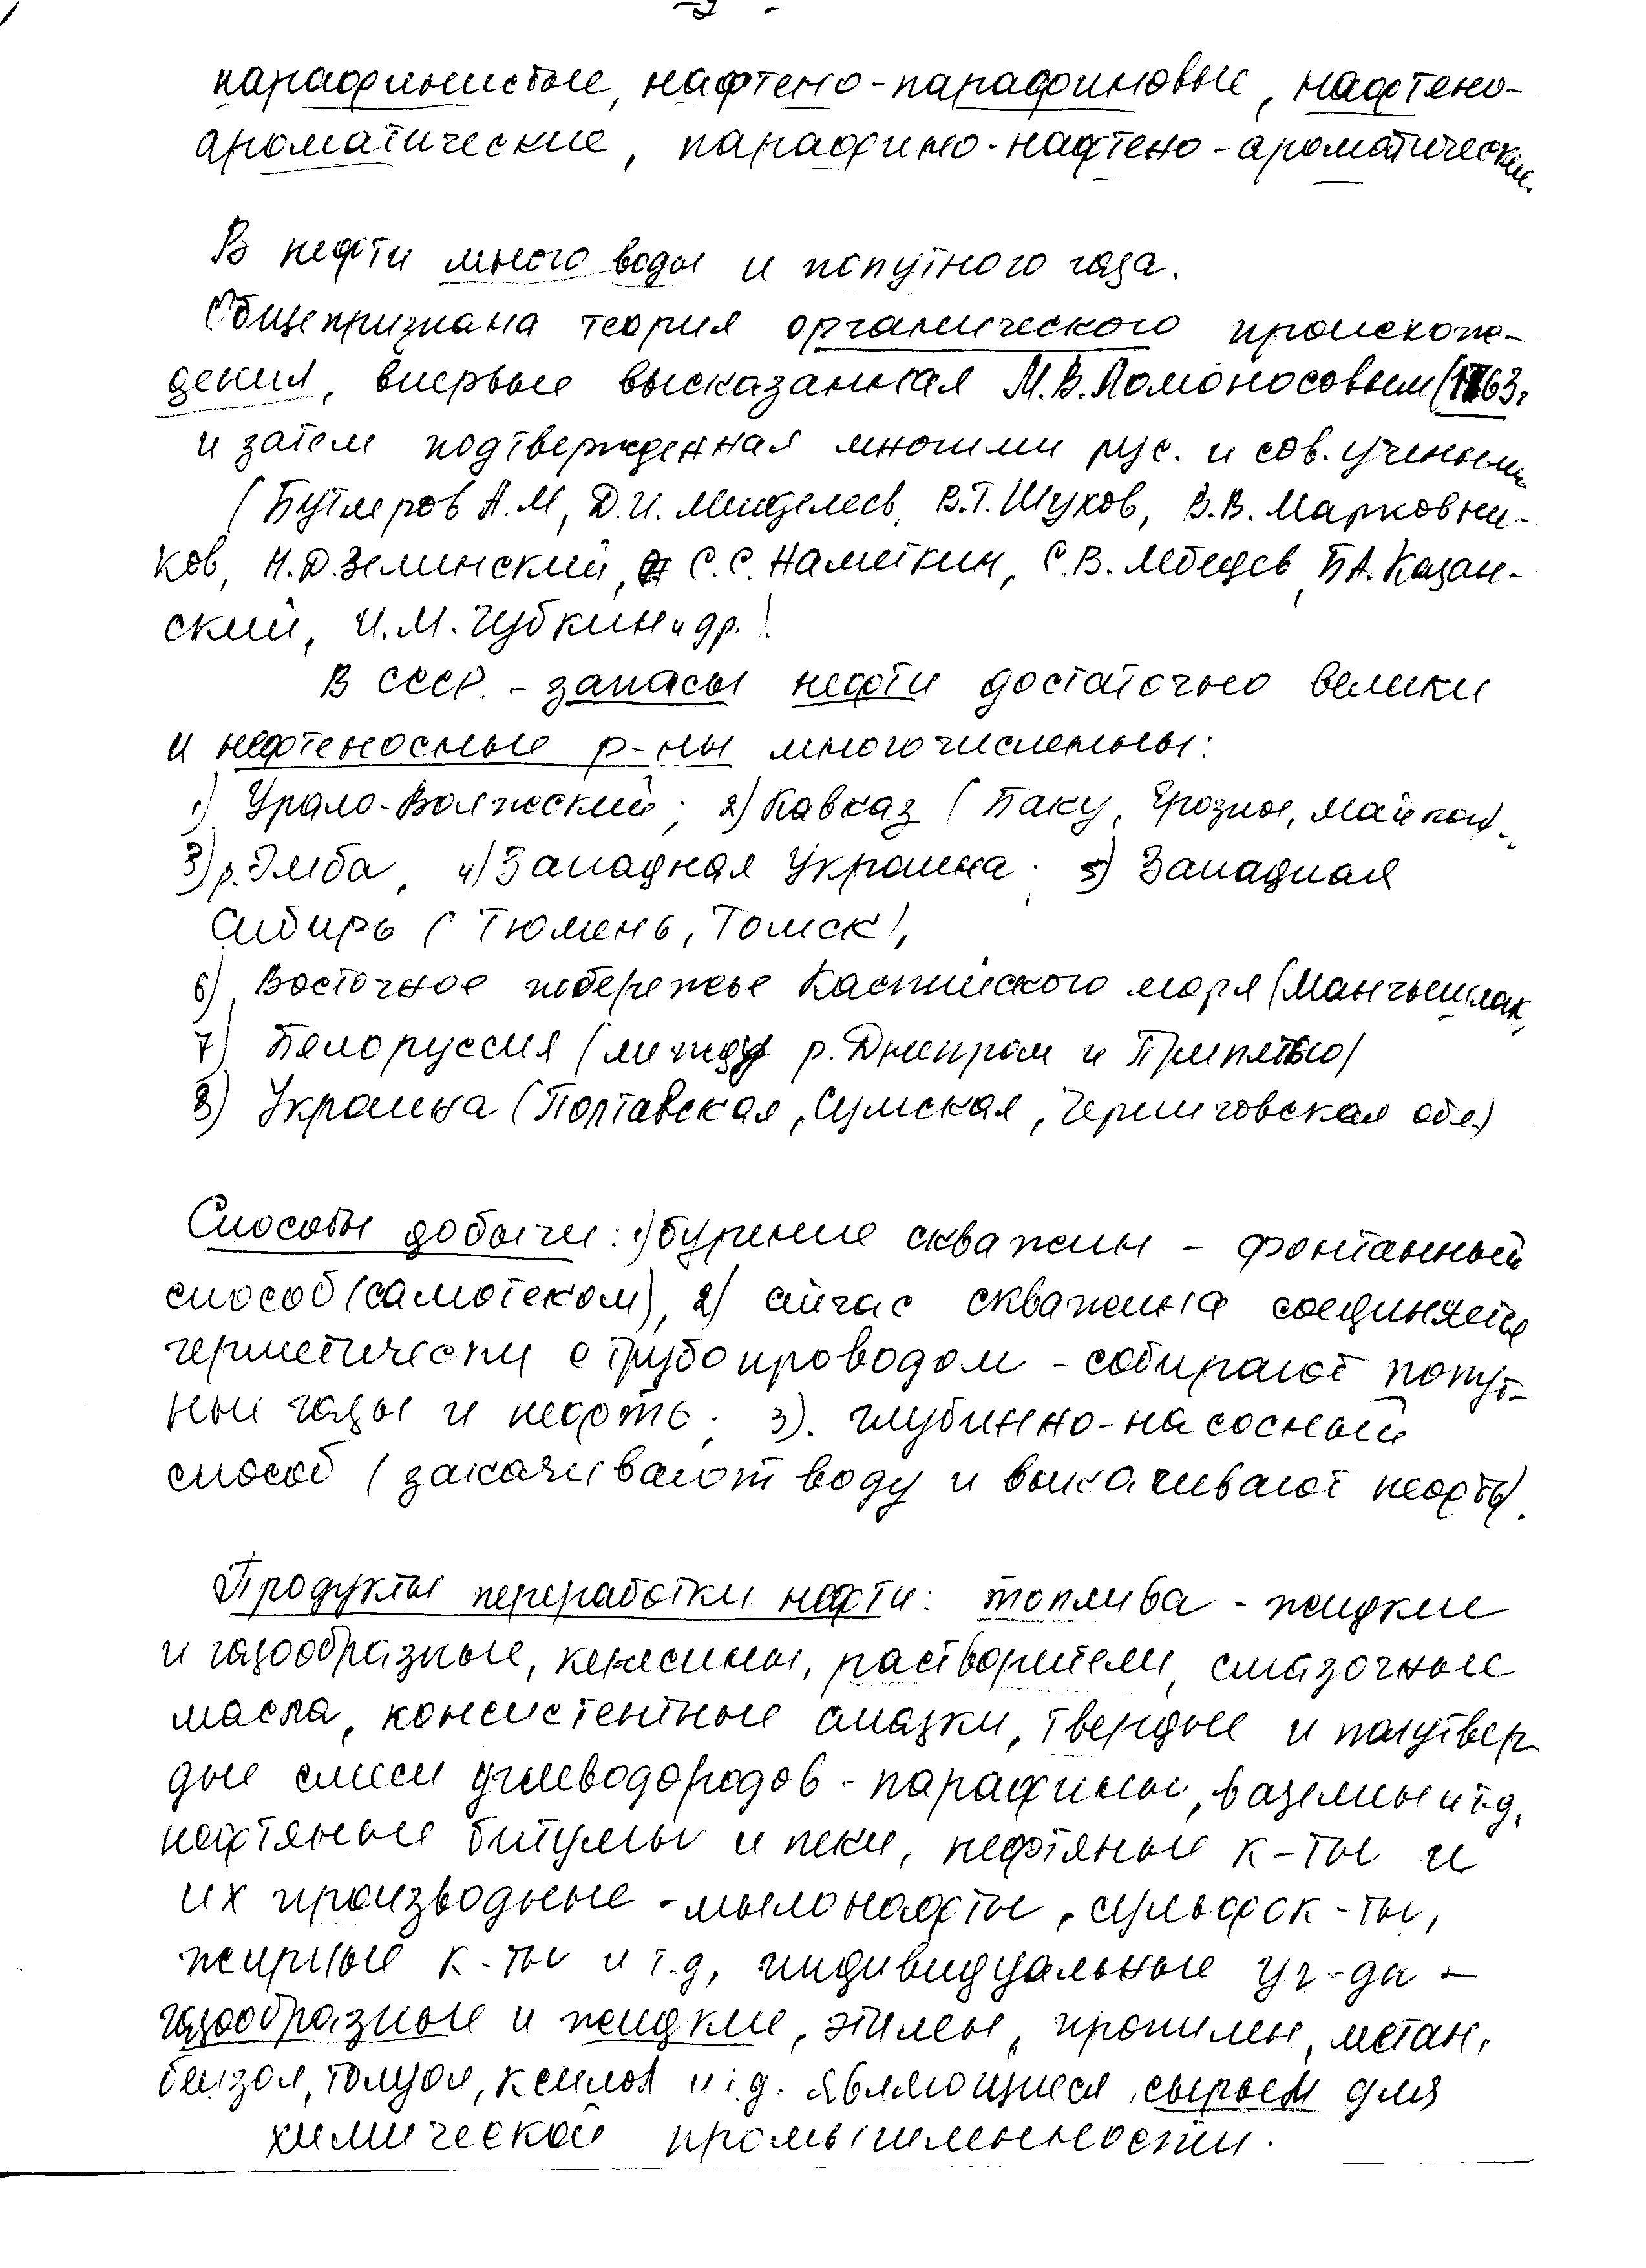 парафинистые, нафтено-парафиновые, нафтено-
ароматические, парафино-нафтено-ароматические.
В нефти много воды и попутного газа.
Общепризнана теория органического происхож-
дения, впервые высказанная М.В.Ломоносовым (1763г
и затем подтвержденная многими рус. и сов. учеными
(Бутлеров А.М, Д.И. Менделеев, В.Г. Шухов, В.В. Марковни-
ков, Н.Д.Зелинский, С.С. Наметкин, С.В. Лебедев, Б.А. Казан-
ский, И.М. Губкин и др.).
В СССР. - запасы нефти достаточно велики
и нефтеносные р-ны многочисленны:
1) Урало-Волжский; 2) Кавказ (Баку, Грозное, Майкоп),
3) р. Эмба, 4) Западная Украина; 5) Западная
Сибирь (Тюмень, Томск),
6) Восточное побережье Каспийского моря (Мангышлак,
7) Белоруссия (между р. Днепром и Припятью)
8) Украина (Полтавская, Сумская, Черниговская обл.)
Способы добычи: 1) бурение скважин - фонтанный
способ (самотеком), 2) сейчас скважина соединяется
герметически с трубопроводом - собирают попут-
ные газы и нефть; 3). глубинно-насосный
способ (закачивают воду и выкачивают нефть).
Продукты переработки нефти: топлива - жидкие
и газообразные, керосины, растворители, смазочные
масла, консистентные смазки, твердые и полутвер
дые смеси углеводородов - парафины, вазелины и т.д,
нефтяные битумы и пеки, нефтяные к-ты и
их производные - мылонафты, сульфок-ты,
жирные к-ты и т.д, индивидуальные уг-ды -
газообразные и жидкие, этилен, пропилен, метан,
бензол, толуол, ксилол и т.д. являющиеся сырьем для
химической промышленности.